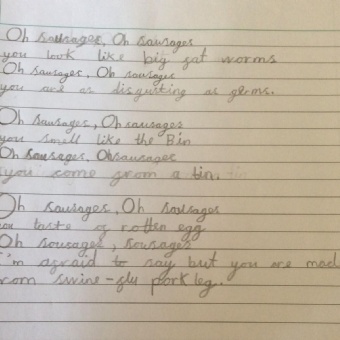 Oh sausages, Oh sausages
you look like big fat worms
Oh sausages, Oh sausages
you are as disgusting as germs.
Oh sausages, Oh sausages
you smell like the Bin
Oh sausages, Oh sausages
you come from a tin. tin
Oh sausages, Oh sausages
you taste of rotten egg
Oh sousages, sousages
I'm afraid to say but you are mad
from swine-flu pork leg.